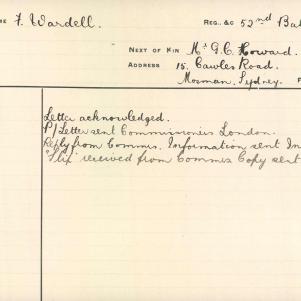 ME F. Wardell. REG., &C 52nd Bat
NEXT OF KIN Mr G. C. Howard.
ADDRESS 15, Cawles Road.
Mosman, Sydney.
Letter acknowledged.
P/Letter sent Commissioners London.
Reply from Commrs. Information sent In
"Slip" received from Commrs Copy sent